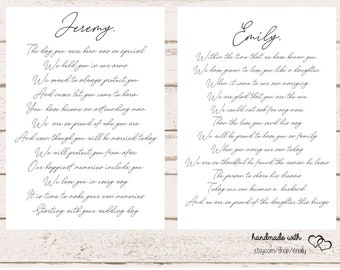 Jeremy,
The day you were born was so special
We held you in our arms
We vowed to always protect you
And never let you come to harm
You have become an outstanding man
We are so proud of who you are
And even though you will be married today
We will protect you from afar
Our happiest memories include you
We love you in every way
It is time to make your own memories
Starting with your wedding day
Emily,
Within the time that we have known you
We have grown to love you like a daughter
When it came to our son marrying
We are glad that you are the one
We could not ask for any more
Than the love you send his way
We will be proud to have you as family
When you marry our son today
We are so thankful he found the woman he loves
The person to share his dreams
Today our son becomes a husband
And we are so proud of the daughter this brings
handmade with
etsy.com/shop/enelly